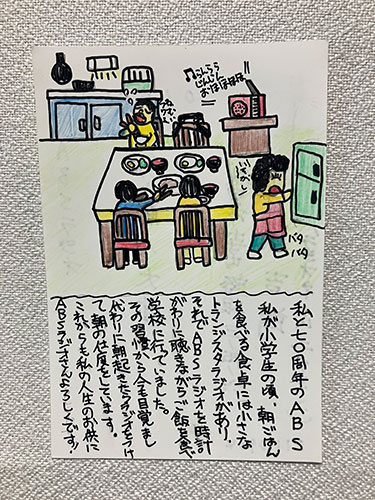 いそがし
バタ
バタ
私と七〇周年のABS
私が小学生の頃、朝ごはん
を食べる食卓には小さな
トランジスタラジオがあり、
それでABSラジオを時計
がわりに聴きながらご飯を食べ
学校に行っていました。
その習慣から今も目覚まし
代わりに朝起きたらラジオをつけ
て朝の仕度をしています。
これからも私の人生のお供に
ABSラジオさんよろしくです!